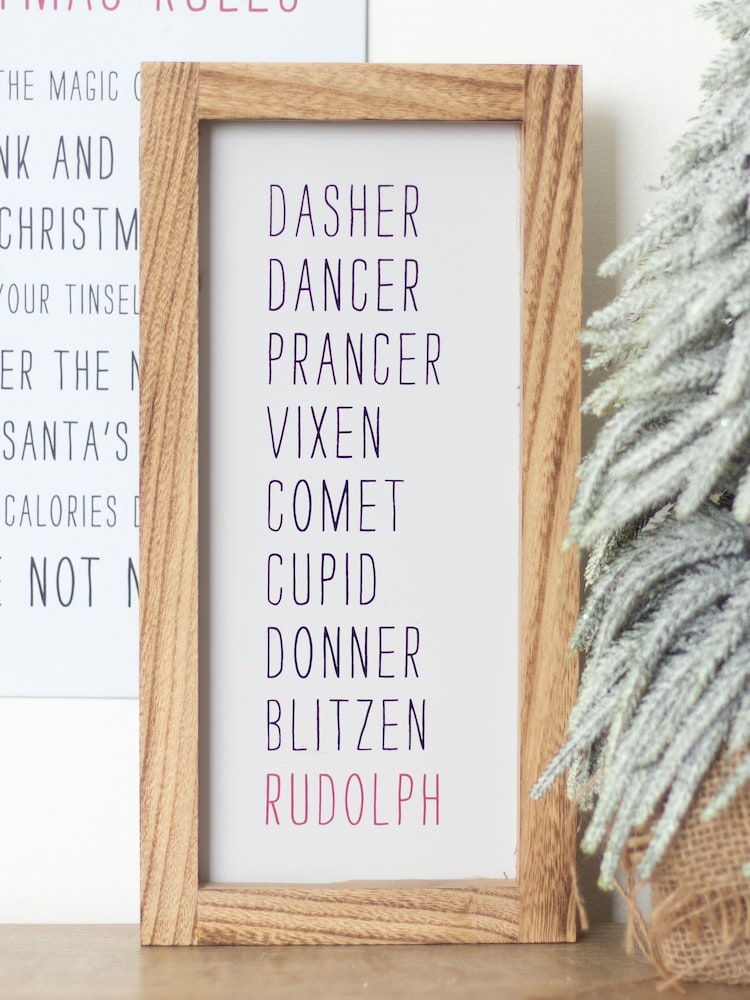 RULES
THE MAGIC
AND
YOUR TINSEL
THE
SANTA'S
CALORIES
NOT
DASHER
DANCER
PRANCER
VIXEN
COMET
CUPID
DONNER
BLITZEN
RUDOLPH